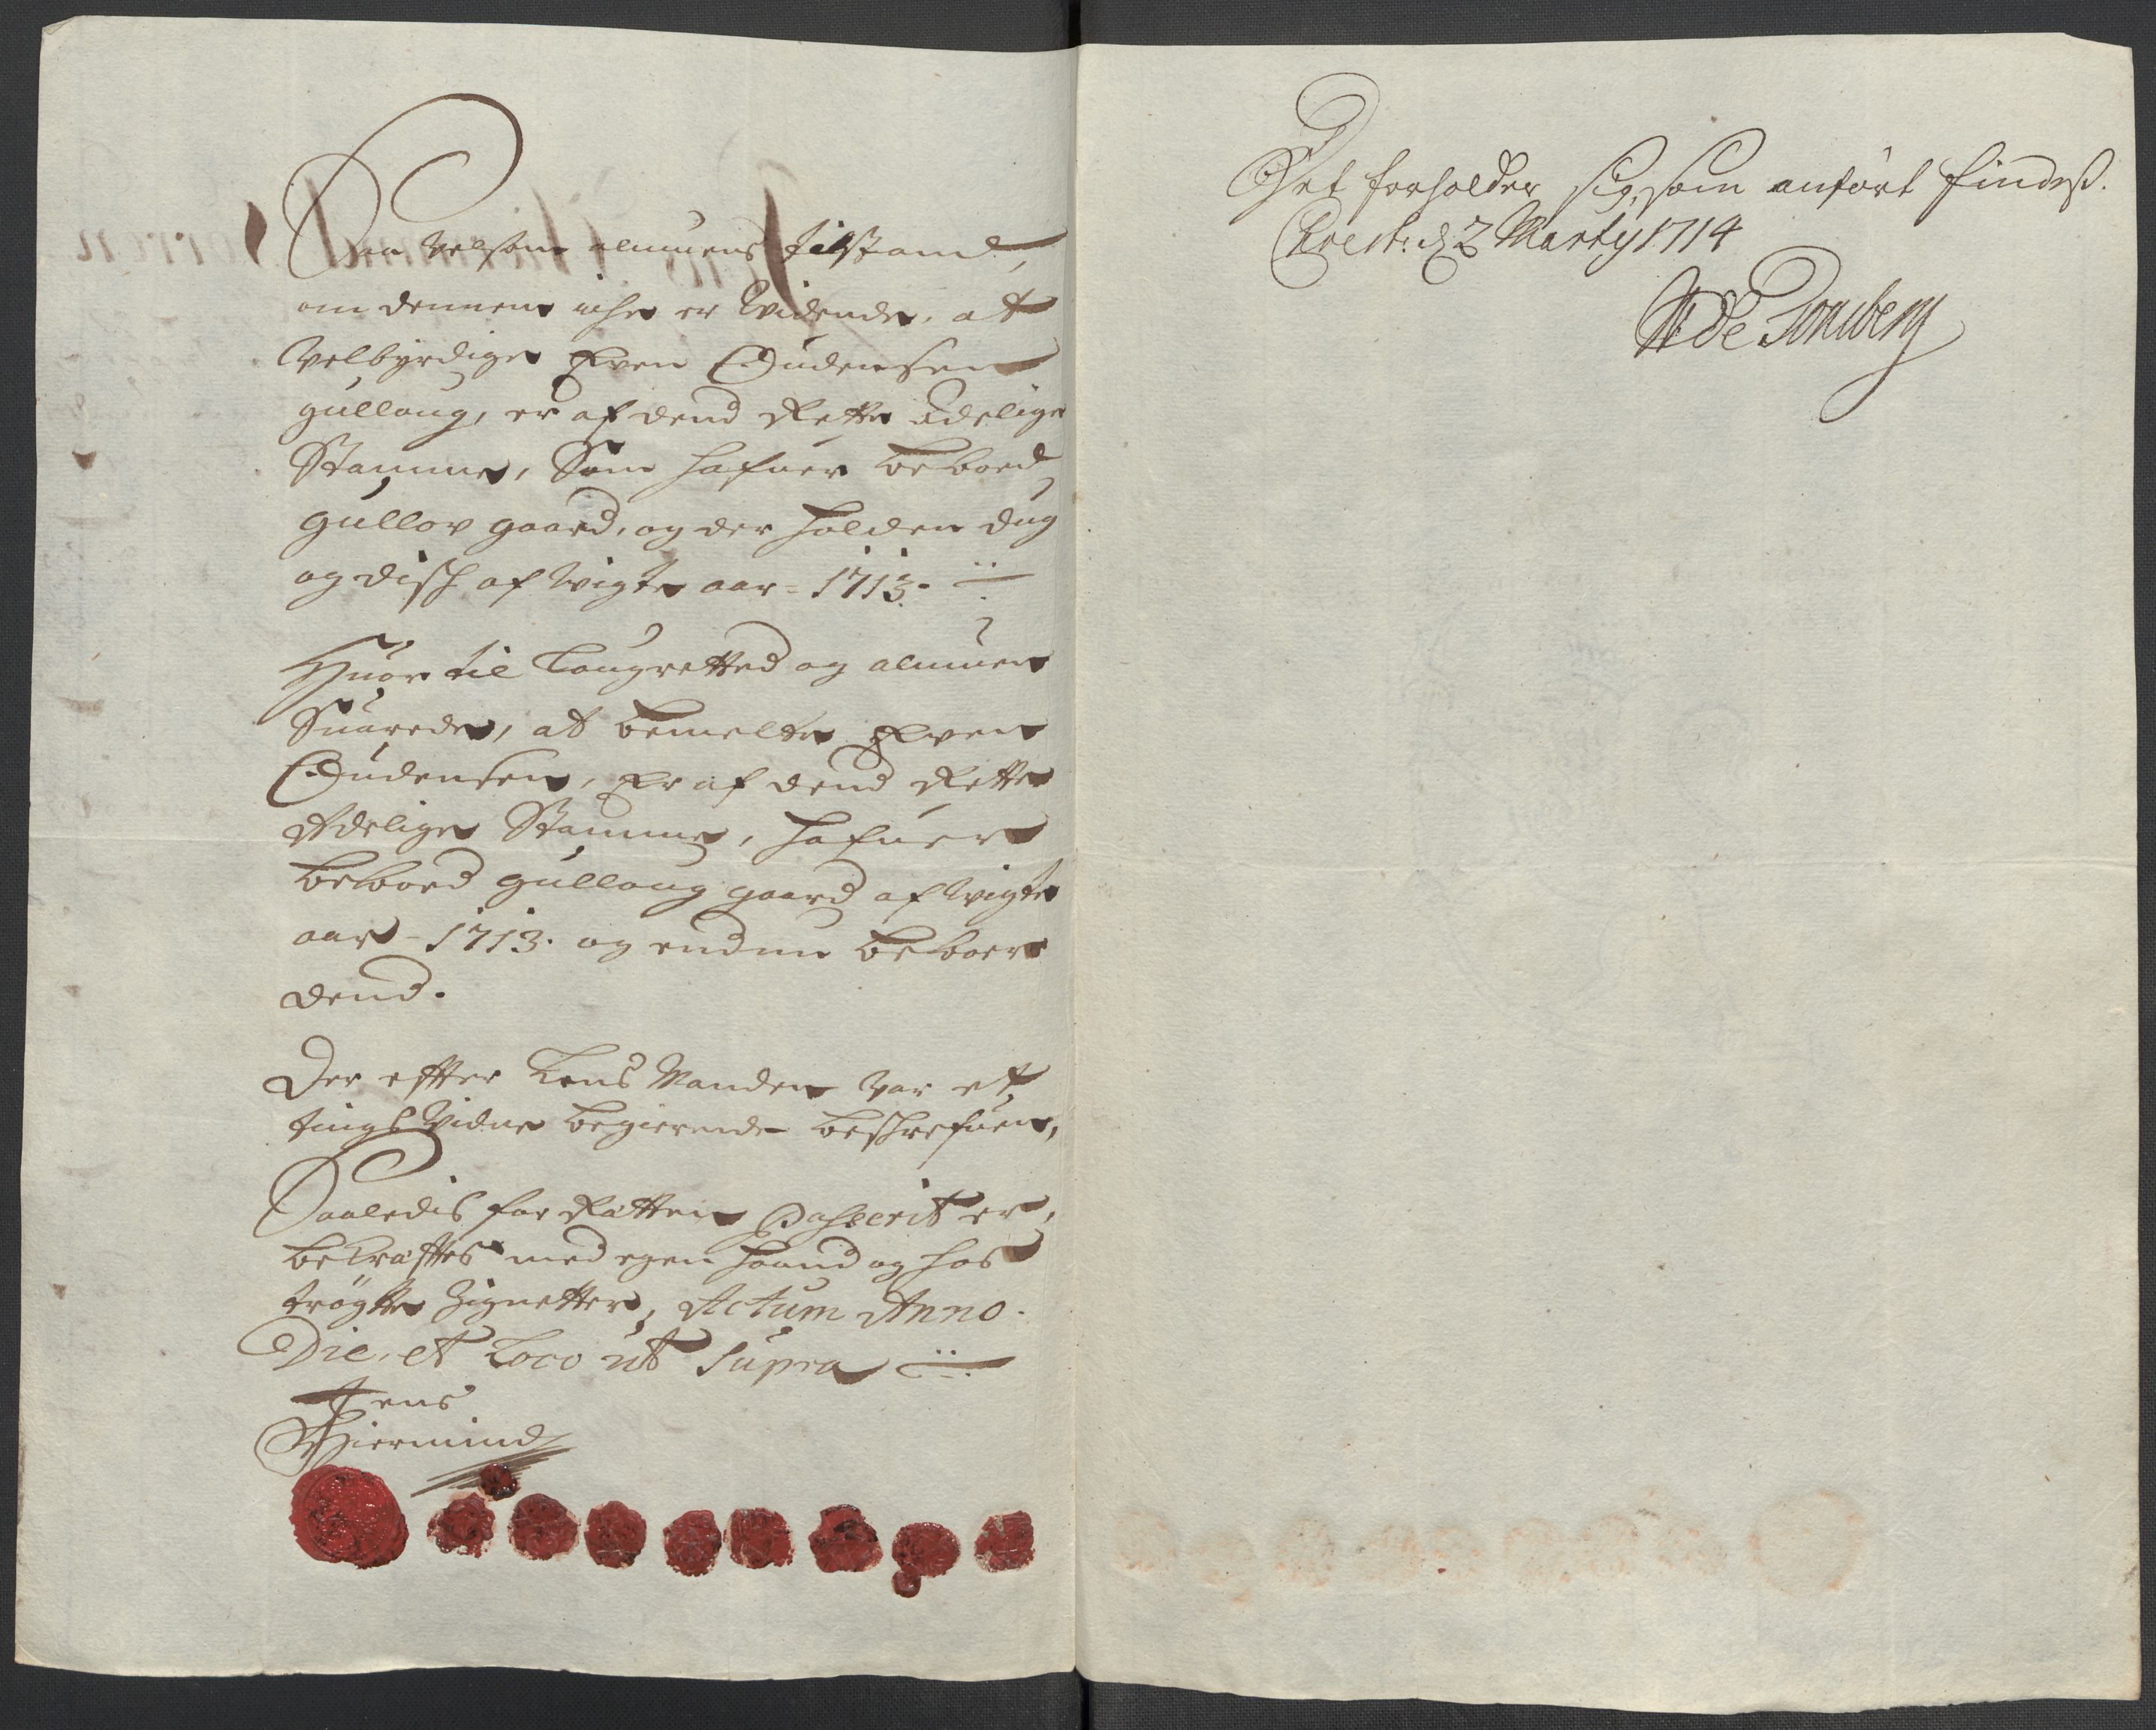 Saa velsom almuens tilstand,
om dennem iche er Vidende, at
Velbyrdige Even Gudensen
gulloug, er af dend Rette Adelige
Stamme, Som hafuer beboed
gullov gaard, og der holden dug
og disch afvigte aar - 1713.
Huor til Laugretted og almuen
Suarede, at bemelte Even
Gudensen, Er af dend Rette
Adelige Stamme, hafuer
beboed gulloug gaard afvigte
aar - 1713. og endnu beboer
dend.
Der effter Lens Manden var et
tings Vidne begierende beschrefuen,
Saaledis for Rætten Passerit er,
bekræfftes med egen haand og hos
trögte Zignetter, Actum Anno.
Die, et Loco ut Supra
Jens
Biermind
Det forholder sig, som anfört findesß.
Christ: d 2 Marty 1714
de Tonsberg